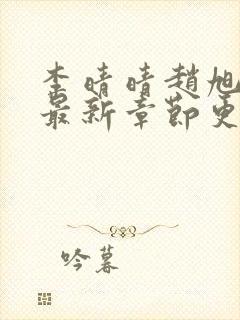 李晴晴趙旭
最新章節更
吟暮